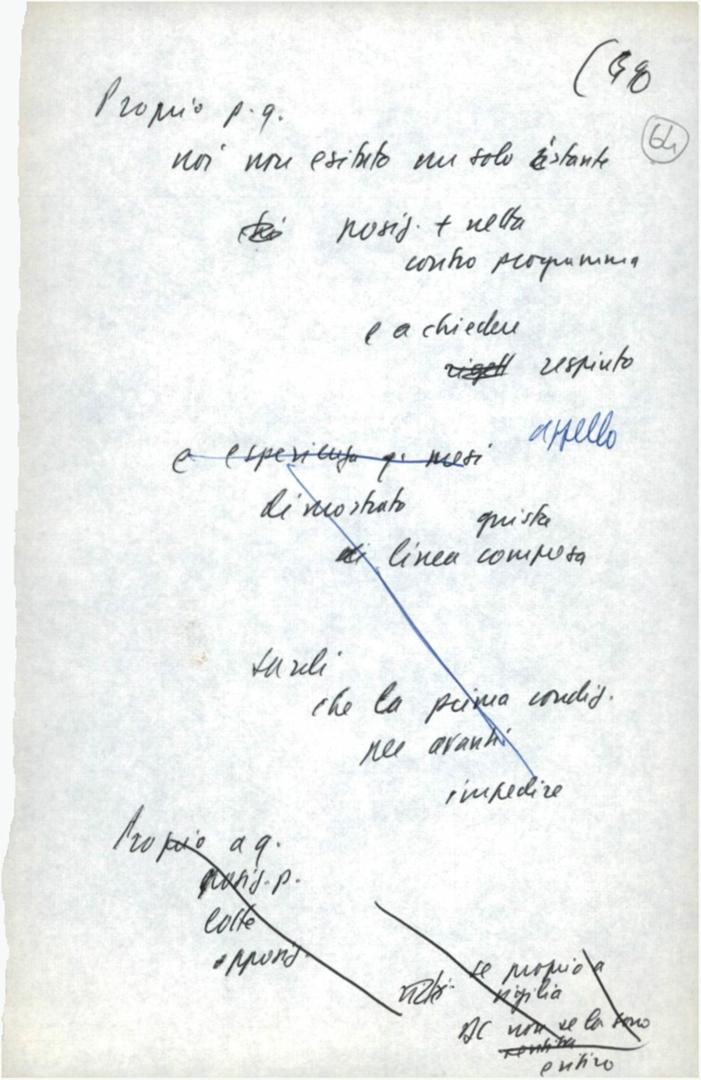 64
Proprio p. q.
noi non esitato un solo istante
posiz. + netta
contro programma
e a chiedere
rigett respinto
appello
e esperienza q. mesi
dimostrato
giusta
di linea compresa
che la prima condiz.
per avanti
impedire
Proprio a q.
posiz. p.
lotte
opposiz.
se proprio a
vigilia
DC non se la sono
sentita